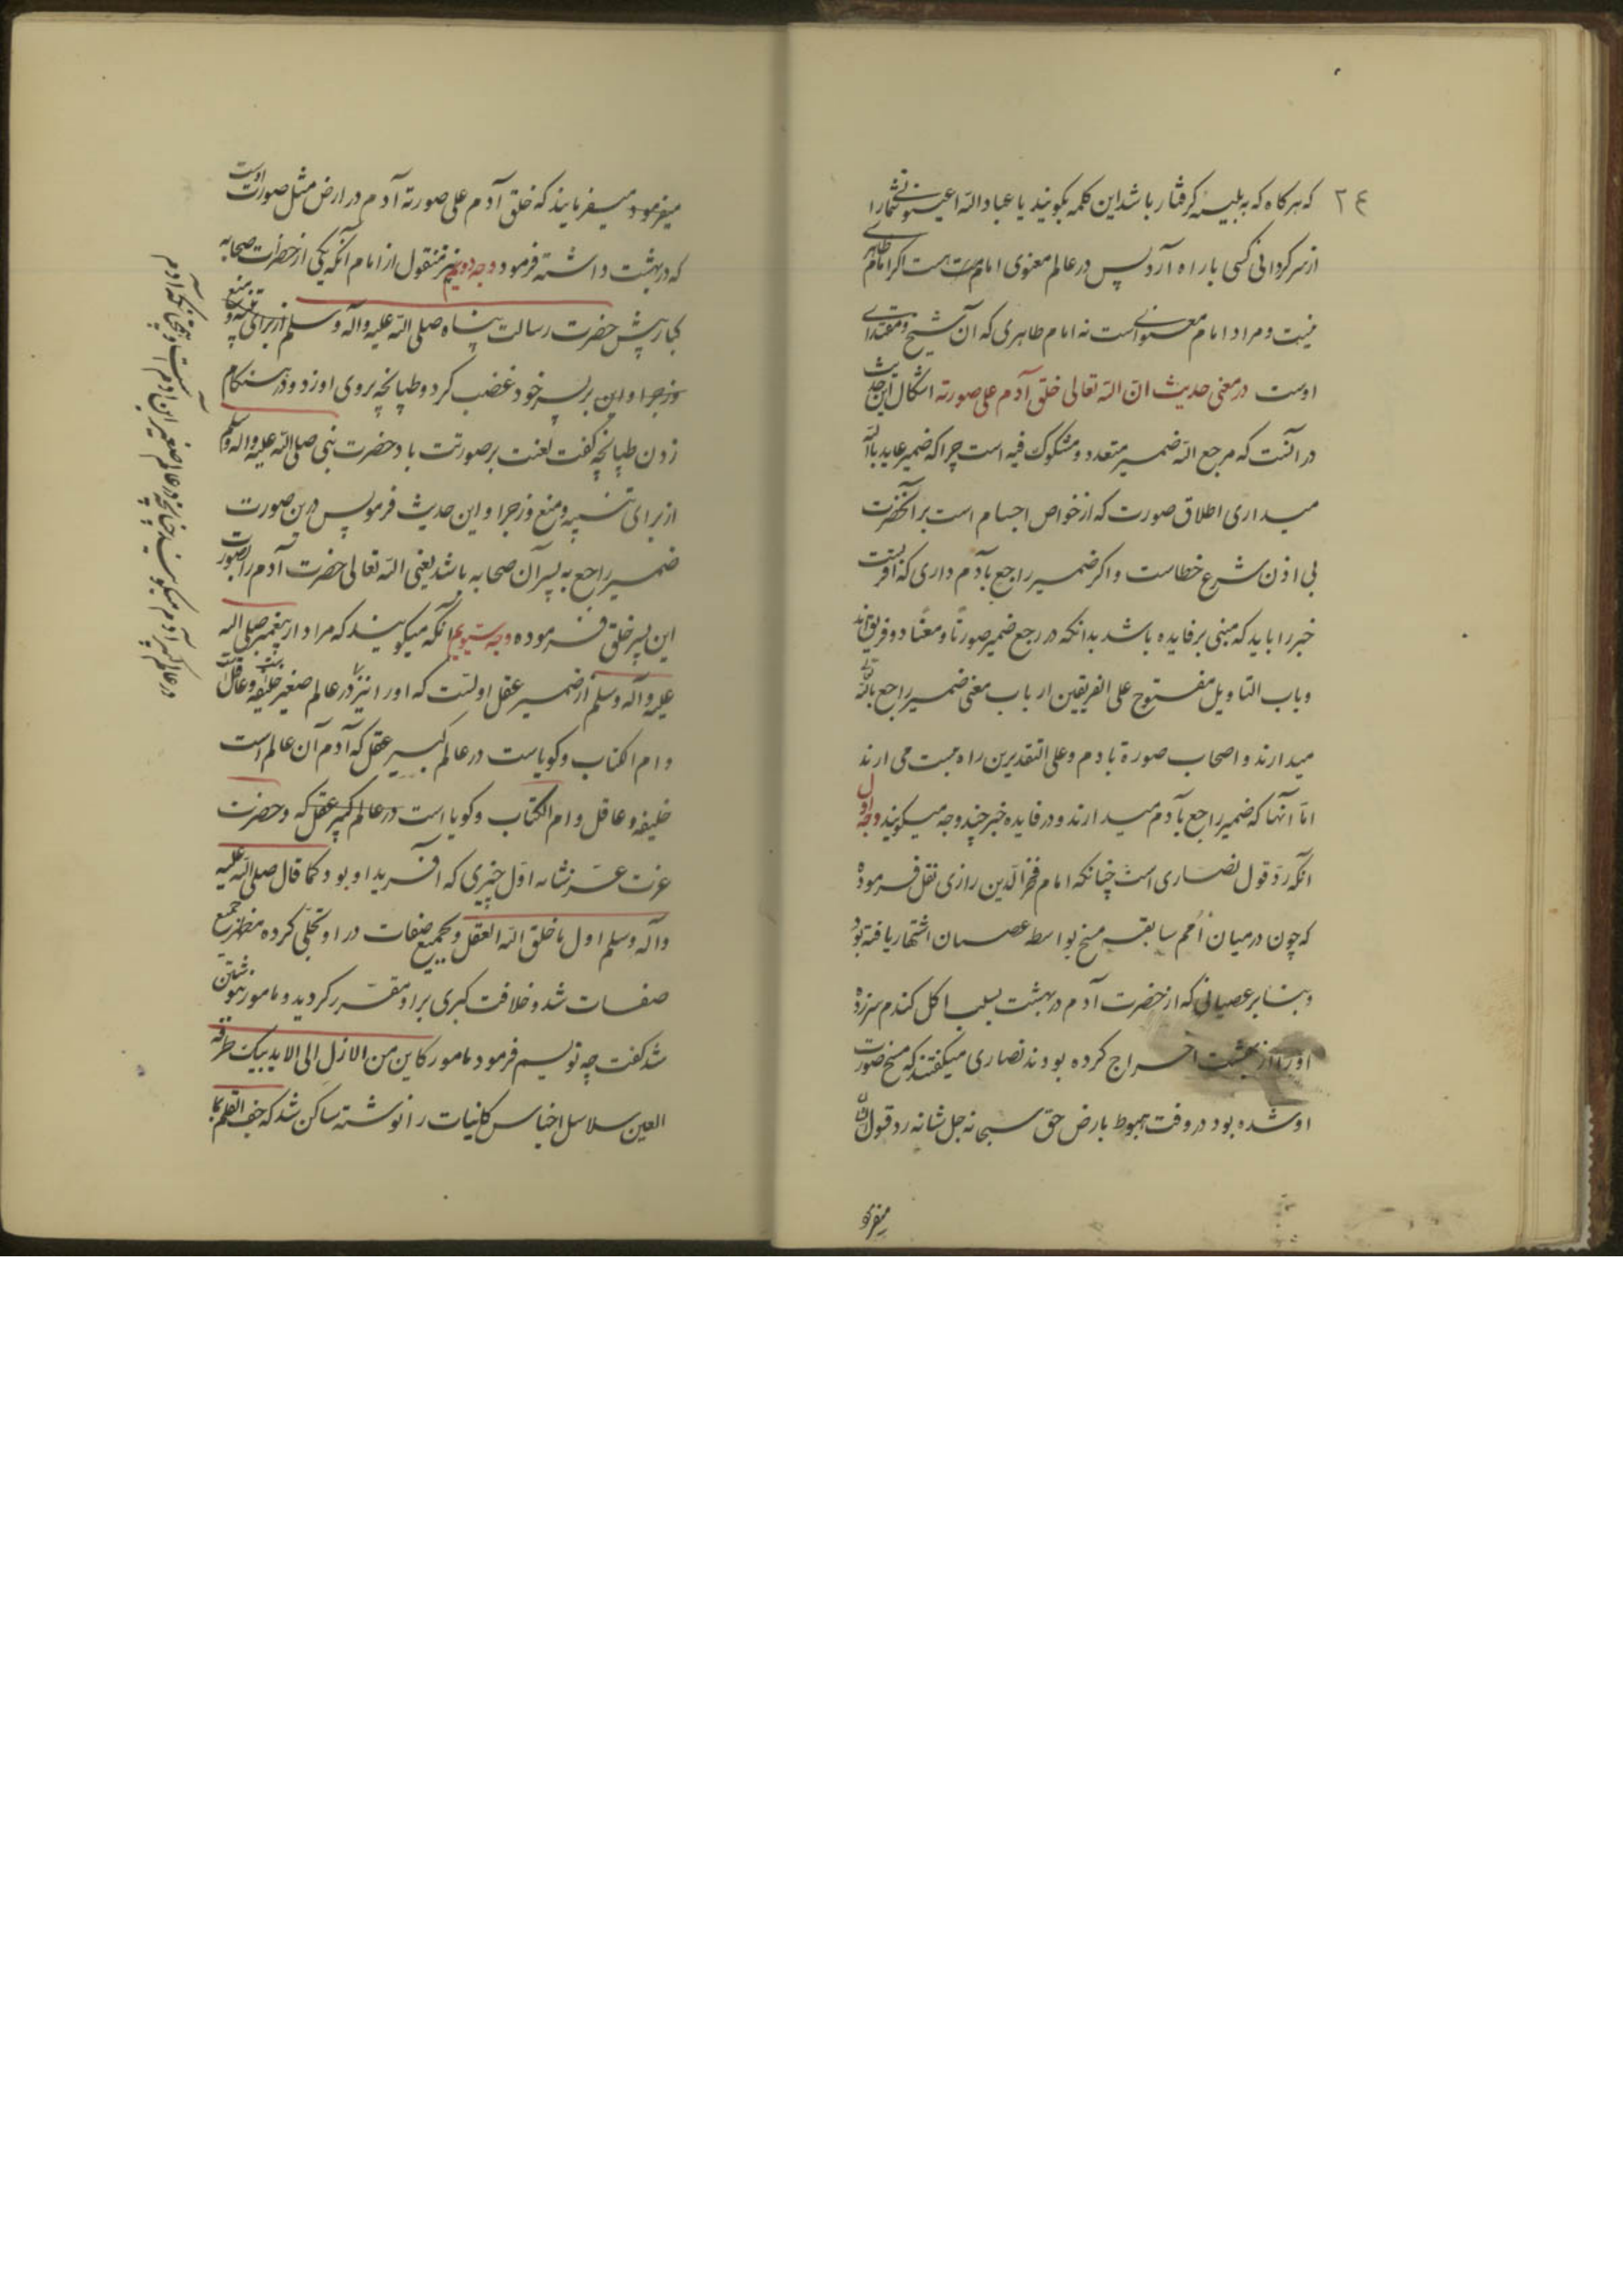 ۲٤
که هرکاه که به بلیه کرفتار باشد این کلمه بکویند یا عباد الله اعینونی تا شما را
از سرکردانی کسی باراه آرد پس در عالم معنوی امام هست اکر امام ظاهری
نیست و مراد امام معنوی است نه امام ظاهری که آن شیخ و مقتدای
اوست در معنی حدیث انّ الله تعالی خلق آدم علی صورته اشکال این حدیث
در آنست که مرجع الیه ضمیر متعدد و مشکوک فیه است چرا که ضمیر عاید بالله
میداری اطلاق صورت که از خواص اجسام است بر آنحضرت
بی اذن شرع خطاست و اکر ضمیر راجع بآدم داری
خبر را باید که مبنی بر فایده باشد بدانکه در رجع ضمیر صورتًا و معنًا دو فریق اند
و باب التاویل مفتوح علی الفریقین ارباب معنی ضمیر راجع بالله
میدارند و اصحاب صورة بادم و علی التقدیرین راه هست می ارند
امّا آنها که ضمیر راجع بآدم میدارند و در فایده خبر چند وجه میکویند وجه اول
آنکه ردّ قول نصاری است چنانکه امام فخر الّدین رازی نقل فرموده
که چون در میان اُمم سابقه مسخ بواسطه عصیان اشتهار یافته بود
و بنابر عصیانی که از حضرت آدم در بهشت بسبب اکل کندم سرزده
اورا از بهشت اخراج کرده بودند نصاری میکفتند که مسخ صورت
او شده بود در وقت هبوط بارض حق سبحانه جل شانه رد قول ایشان
میفرمو
میفرمود میفرمایند که خلق آدم علی صورته آدم در ارض مثل صورت اوست
که در بهشت داشته فرمود وجه دویم نیز منقول از امام آنکه یکی از حضرات صحابه
کبار پیش حضرت رسالت پناه صلی الله علیه واله وسلم از برای تنبیه و منع
و زجر او این بر پسر خود غضب کرد و طپانچه بروی او زد و در هنکام
زدن طپانچه کفت لعنت بر صورتت باد حضرت نبی صلی الله علیه واله وسلم
از برای تنبیه و منع و زجر او این حدیث فرمود پس درین صورت
ضمیر راجع به پسر آن صحابه باشد یعنی الله تعالی حضرت آدم را بصورت
این پسر خلق فرموده وجه سیّویم آنکه میکویند که مراد از پیغمبر صلی الله
علیه وآله وسلم از ضمیر عقل اولست که او را نیز در عالم صغیر خلیفه و عاقل
و ام الکتاب و کویاست در عالم کبیر عقل که آدم آن عالم است
خلیفه و عاقل و ام الکتاب و کویا است در عالم کبیر عقل که و حضرت
عزت عزّ شانه اوّل چیزی که آفرید او بود کما قال صلی الله علیه
وآله وسلم اول ما خلق الله العقل و بجمیع صفات در او تجلّی کرده مظهر جمیع
صفات شد و خلافت کبری بر او مقرّر کردید و مامور بنوشتن
شد کفت چه نویسم فرمود مامور کاین من الازل الی الابد بیک طرفة
العین سلاسل اجناس کاینات را نوشته ساکن شد که جف القلم بما
در عالم کبیر آدم میکویند چنانچه در عالم صغیر ابن آدم